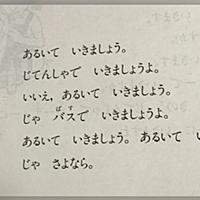 あるいて いきましょう。
じてんしゃで いきましょうよ。
いいえ，あるいて いきましょう。
じゃ バスで いきましょうよ。
あるいて いきましょう。 あるいて い
じゃ さよなら。